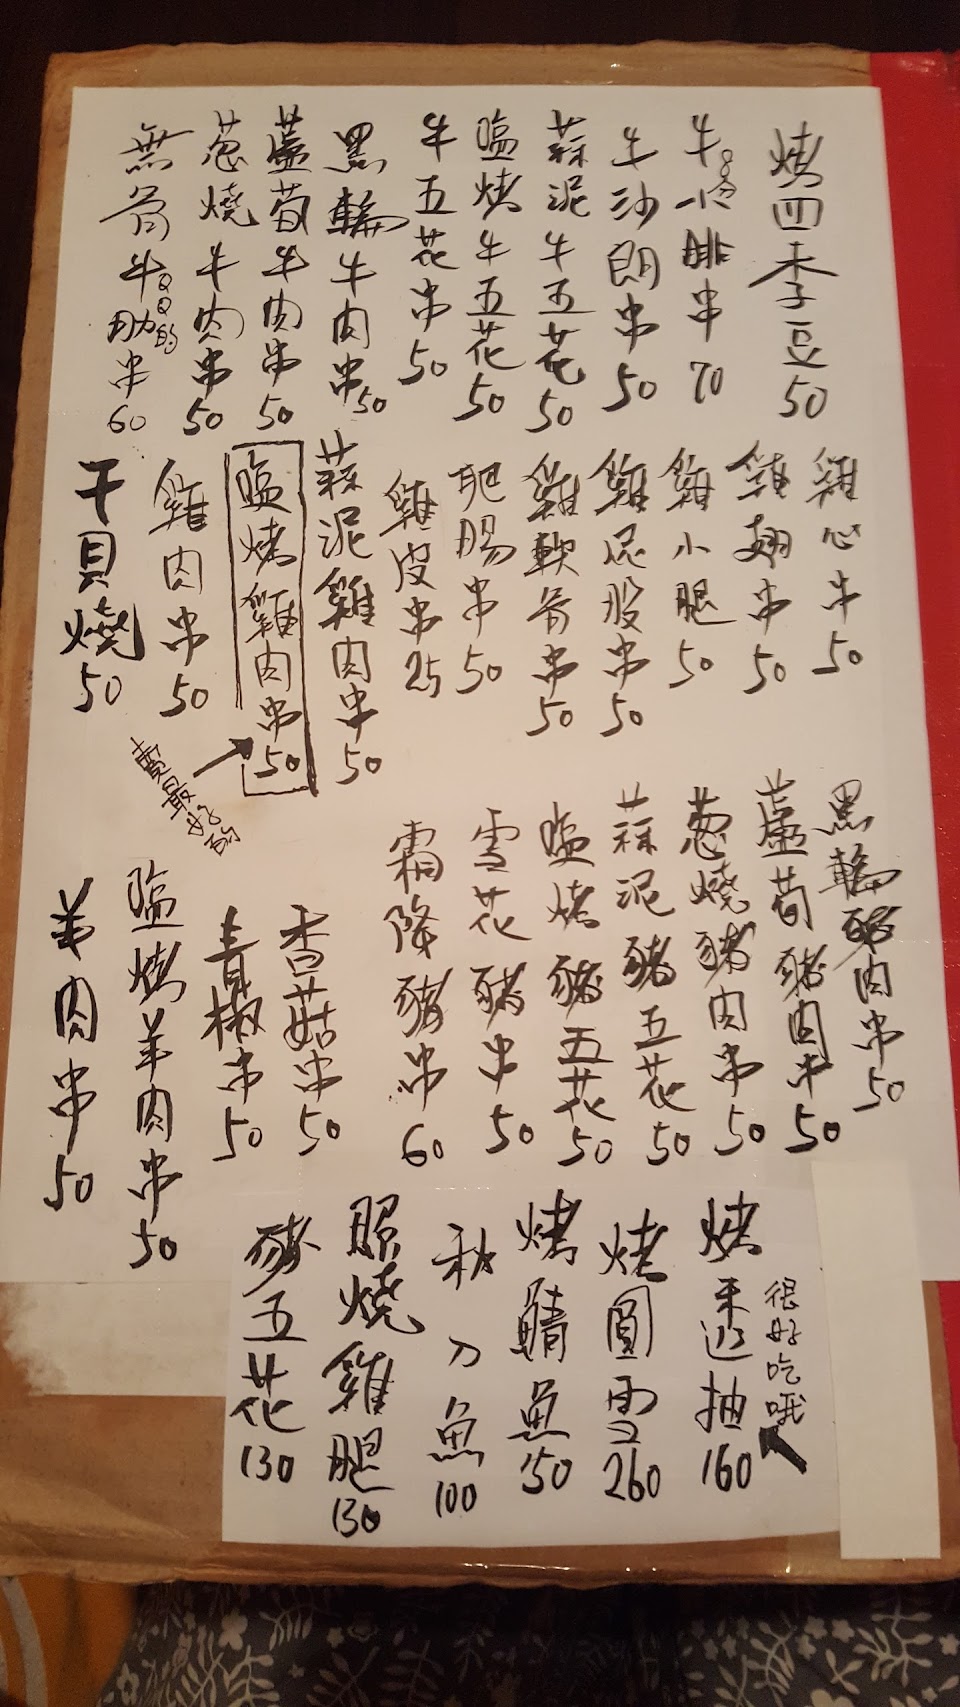 烤四季豆50
牛小排串70
牛沙朗串50
蒜泥牛五花50
塩烤牛五花50
牛五花串50
黑輪牛肉串50
蘆荀牛肉串50
葱燒牛肉串50
無骨牛肋串60
QQ的
雞心串50
雞翅串50
雞小腿50
雞屁股串50
雞軟骨串50
肥腸串50
雞皮串25
蒜泥雞肉串50
塩烤雞肉串50
賣最好的
雞肉串50
干貝燒50
黑輪豬肉串50
蘆荀豬肉串50
葱燒豬肉串50
蒜泥豬五花50
塩烤豬五花50
雪花豬串50
霜降豬串60
香菇串50
青椒串50
塩烤羊肉串50
羊肉串50
烤透抽160
很好吃哦
烤圓雪260
烤鯖魚150
秋刀魚100
照燒雞腿130
豬五花130